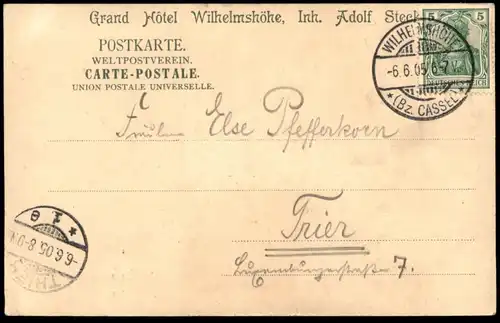 Grand Hôtel Wilhelmshöhe, Inh. Adolf Steck
5 5
POSTKARTE.
WELTPOSTVEREIN.
CARTE-POSTALE.
UNION POSTALE UNIVERSELLE.
WILHELMSHÖHE
-6.6.05.6-7
*(Bz. CASSEL)*
Fräulein Else Pfefferkorn
Trier
Luxemburgerstraße 7.
* 1 e
-6.6.05.8-9N